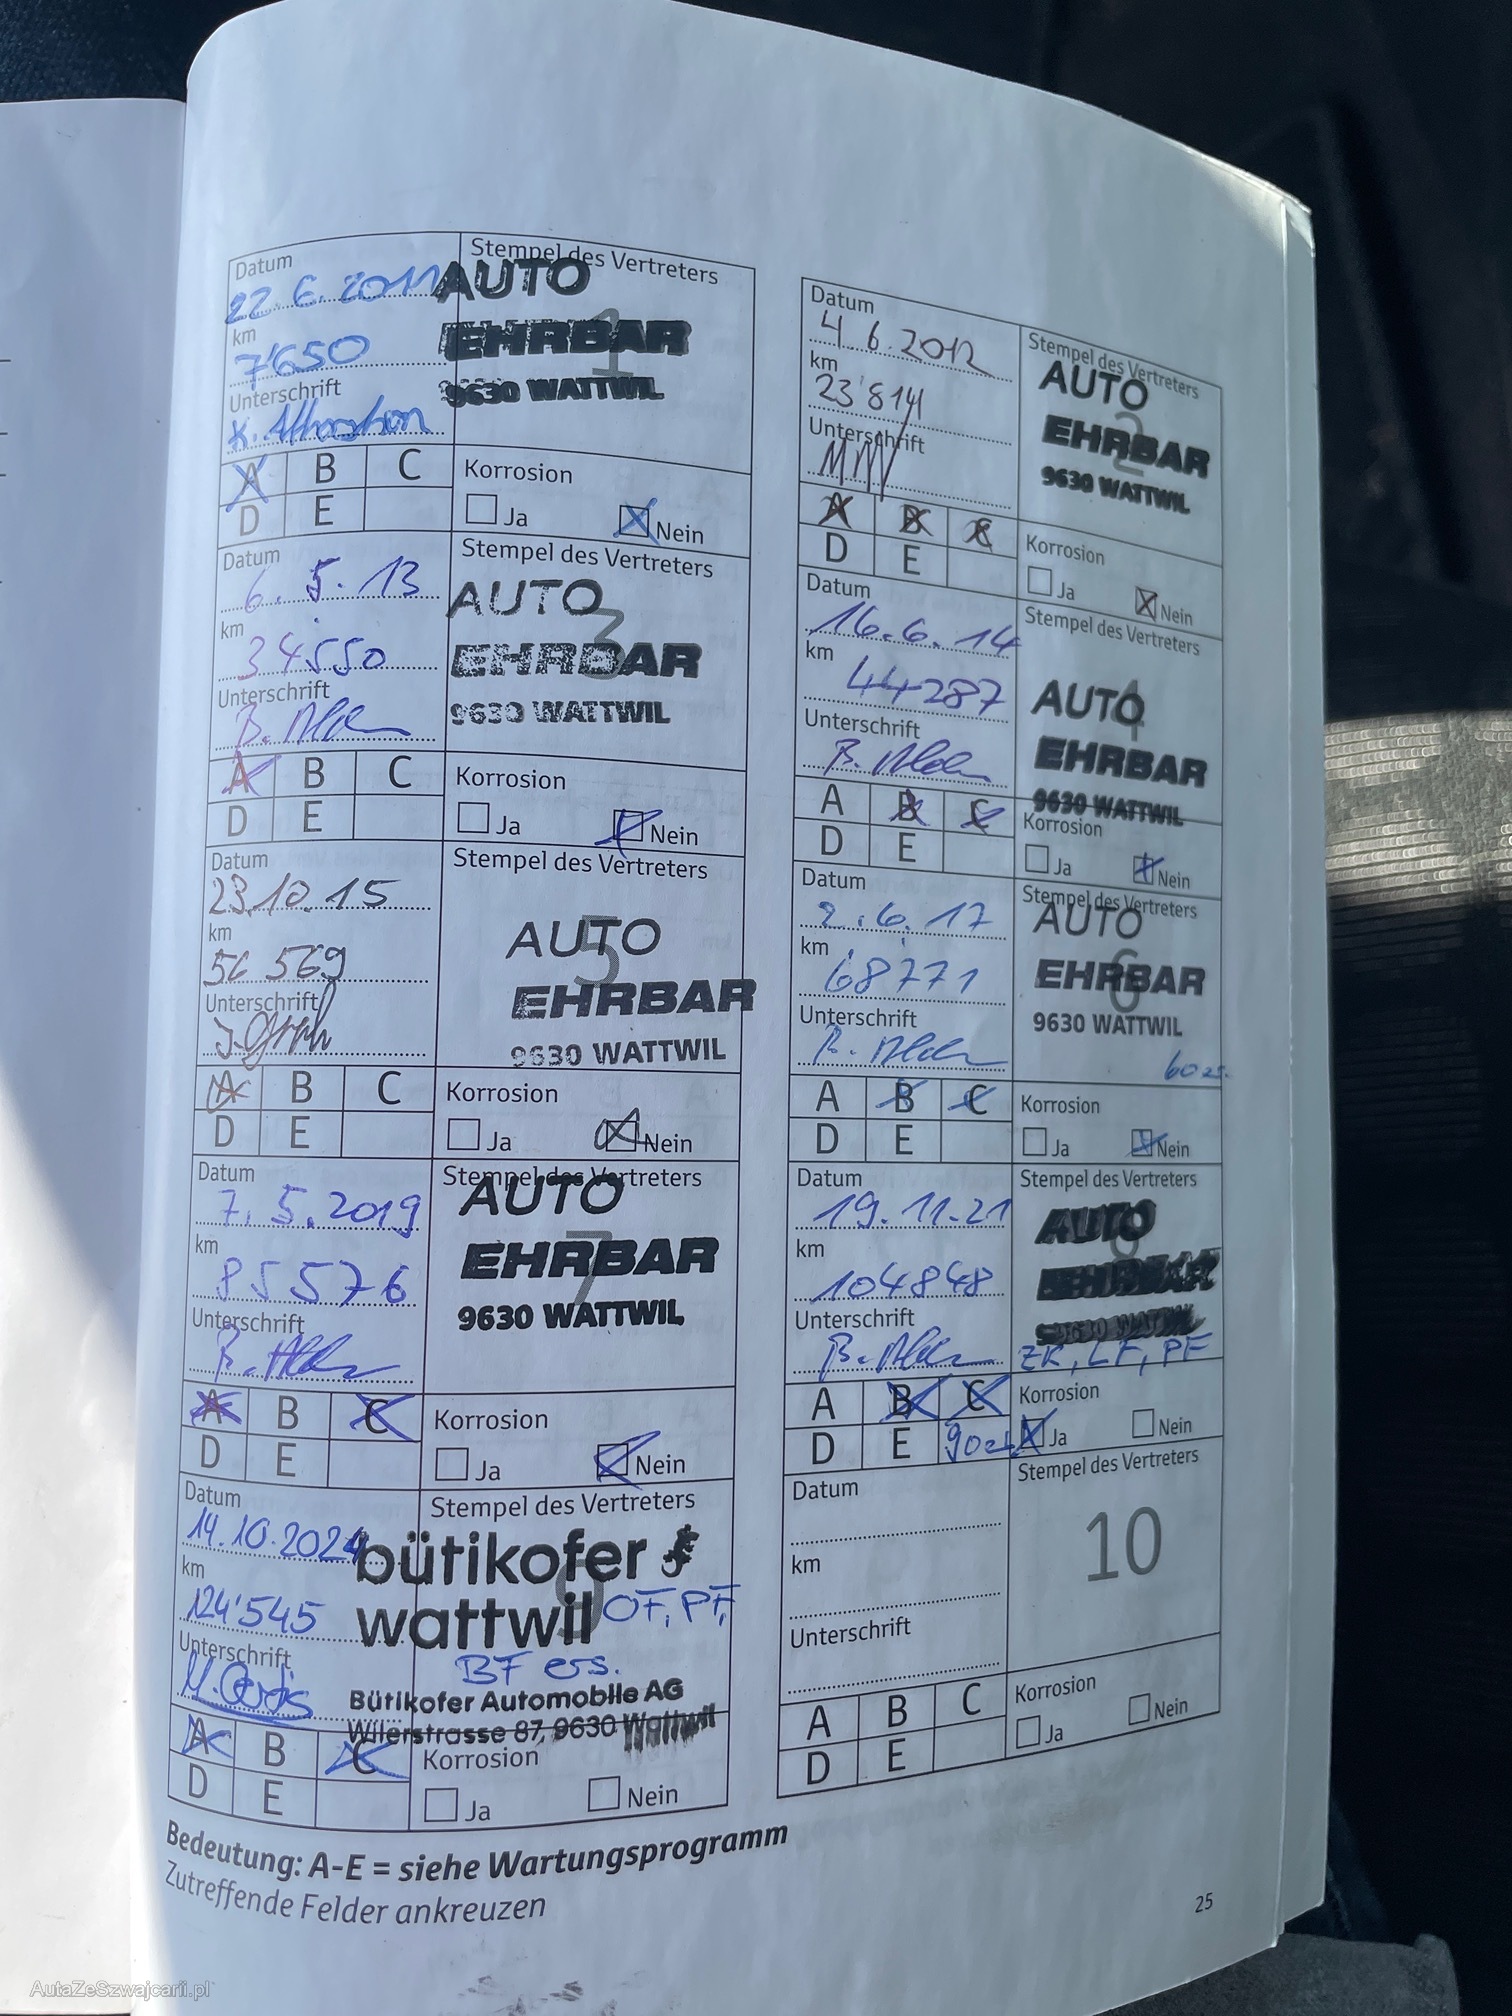 Datum
22.6.2011
km
7'650
Unterschrift
Stempel des Vertreters
AUTO
1
EHRBAR
9630 WATTWIL
A B C
D E
Korrosion
Ja Nein
Datum
4.6.2012
km
23'814
Unterschrift
Stempel des Vertreters
AUTO
2
EHRBAR
9630 WATTWIL
A B C
D E
Korrosion
Ja Nein
Datum
6.5.13
km
34550
Unterschrift
Stempel des Vertreters
AUTO
3
EHRBAR
9630 WATTWIL
A B C
D E
Korrosion
Ja Nein
Datum
16.6.14
km
44287
Unterschrift
Stempel des Vertreters
AUTO
4
EHRBAR
9630 WATTWIL
A B C
D E
Korrosion
Ja Nein
Datum
23.10.15
km
56 569
Unterschrift
Stempel des Vertreters
AUTO
5
EHRBAR
9630 WATTWIL
A B C
D E
Korrosion
Ja Nein
Datum
2.6.17
km
68771
Unterschrift
Stempel des Vertreters
AUTO
6
EHRBAR
9630 WATTWIL
A B C
D E
Korrosion
Ja Nein
Datum
7.5.2019
km
85576
Unterschrift
Stempel des Vertreters
AUTO
7
EHRBAR
9630 WATTWIL
A B C
D E
Korrosion
Ja Nein
Datum
19.11.21
km
104848
Unterschrift
Stempel des Vertreters
AUTO
8
EHRBAR
9630 WATTWIL
ZK, LF, PF
A B C
D E
Korrosion
Ja Nein
Datum
14.10.2024
km
124'545
Unterschrift
Stempel des Vertreters
bütikofer
9
wattwil
OF, PF,
BF ers.
Bütikofer Automobile AG
Wilerstrasse 87, 9630 Wattwil
A B C
D E
Korrosion
Ja Nein
Datum
km
Unterschrift
Stempel des Vertreters
10
A B C
D E
Korrosion
Ja Nein
Bedeutung: A-E = siehe Wartungsprogramm
Zutreffende Felder ankreuzen
25
AutaZeSzwajcarii.pl